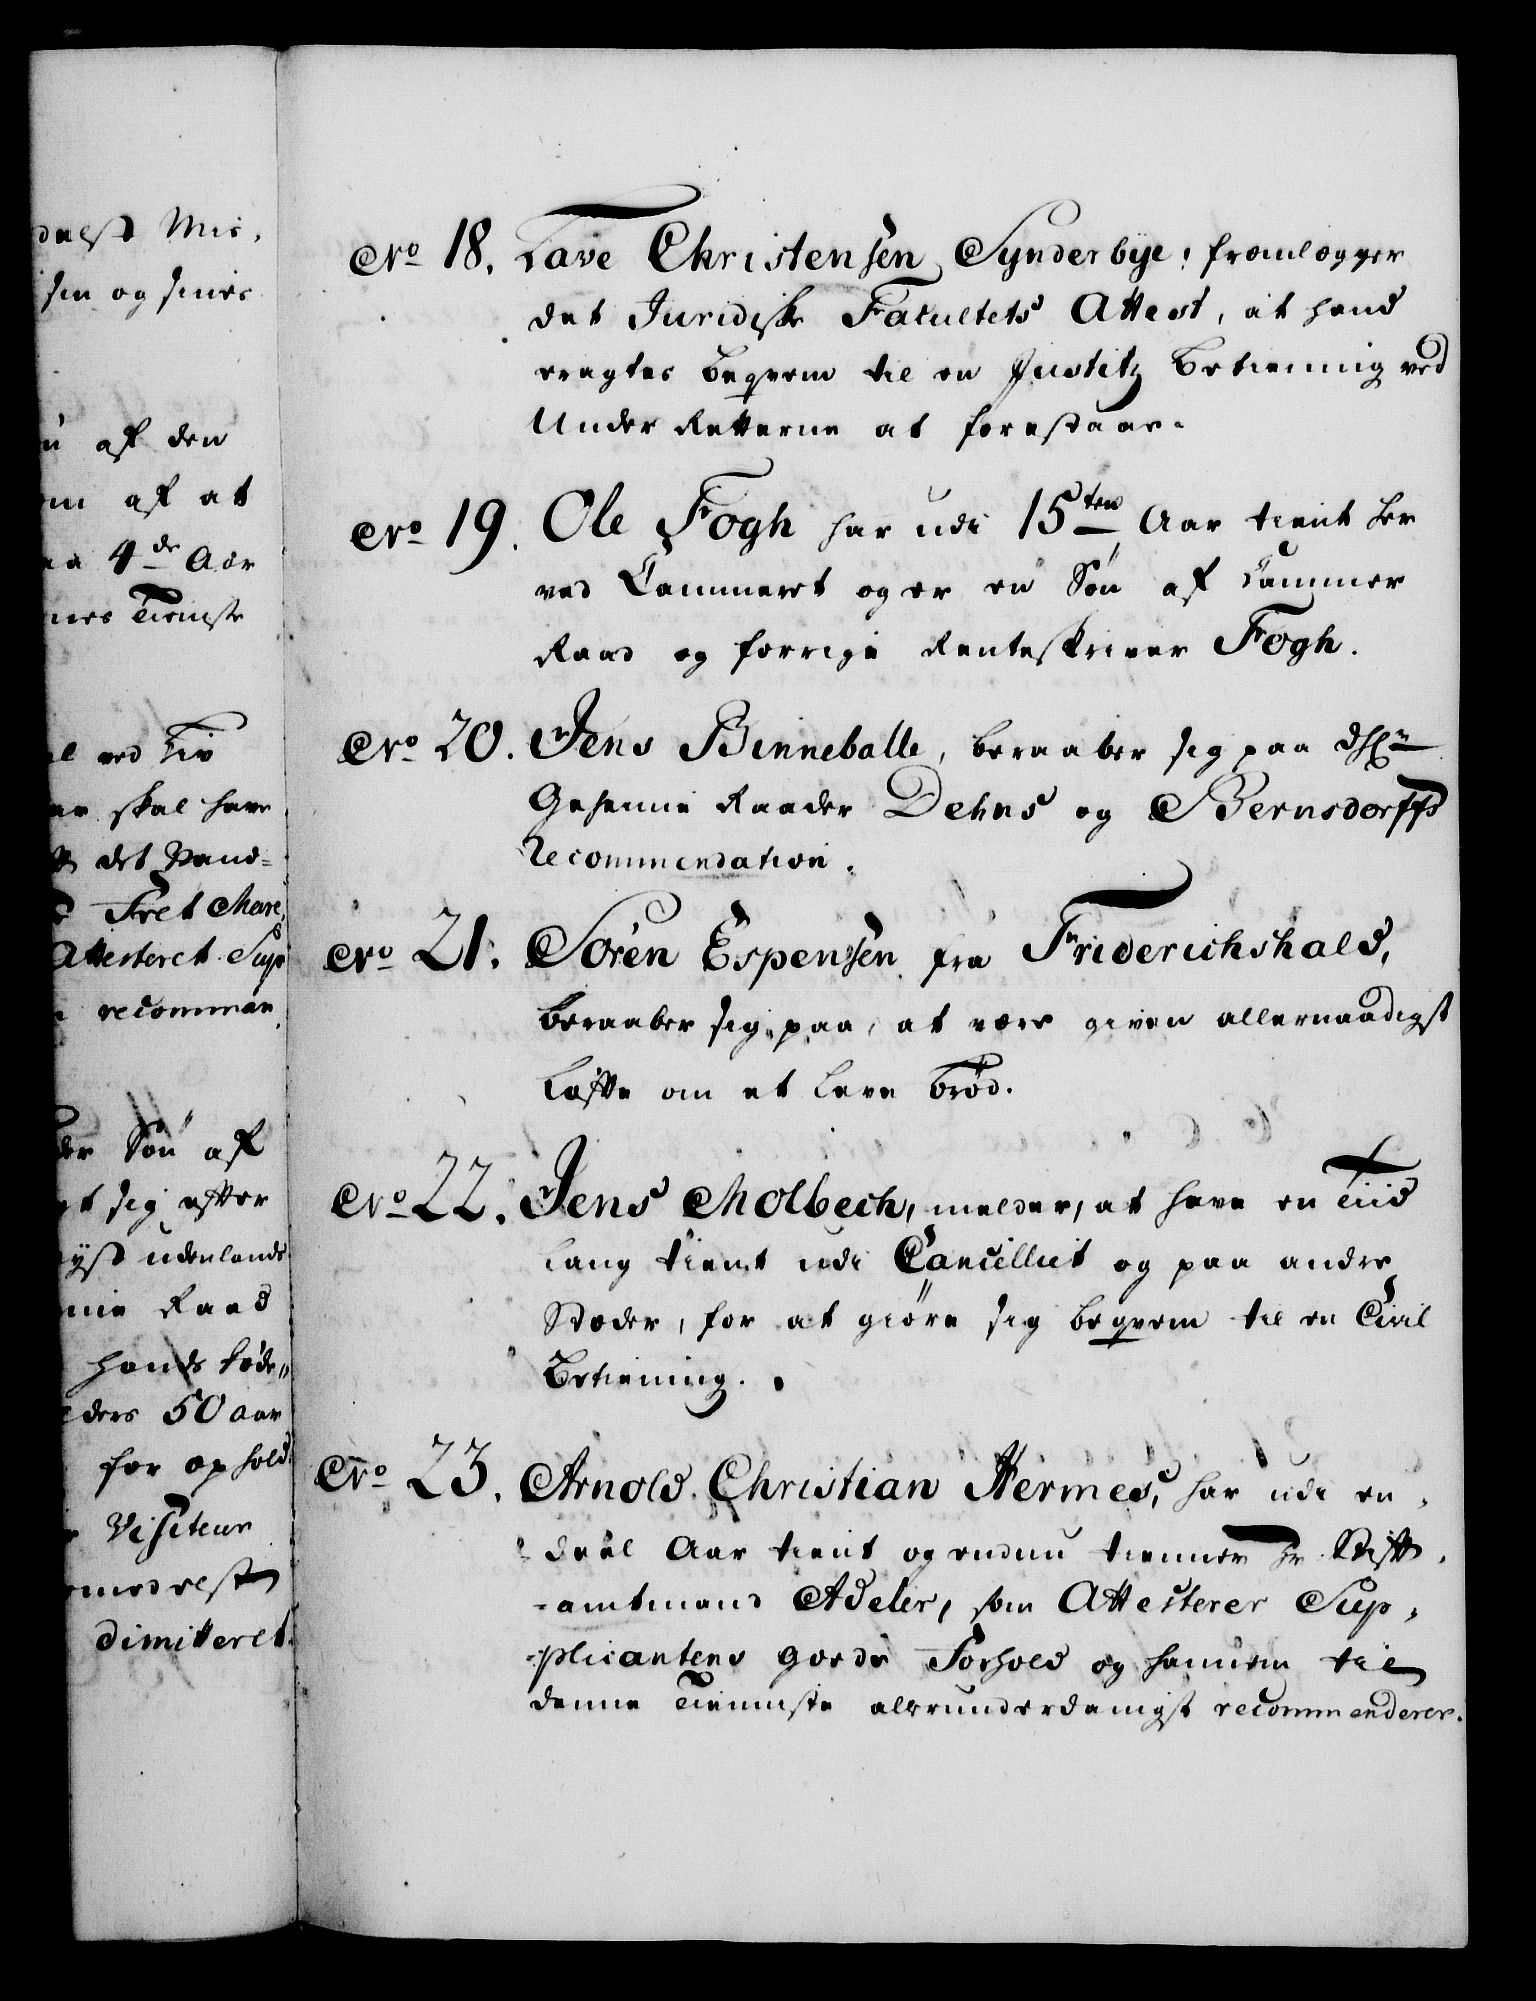 dalst Mis,
sin og sines
af den
af at
4de Aar
nes Tieniste
ved Liv
skal have
det Vand=
Fret Mare,
Attesteret Sup
recomman,
Søn af
sig efter
udenlands
Raad
hands Føde,,
50 aar
for ophold.
Visiteur
dimitteret.
No 18. Lave Christensen Synderbye, fremlægger
det Juridiske Facultets Attest, at hand
eragtes beqvem til en Justitz Betiening ved
Under Retterne at forestaae.
No 19. Ole Fogh har udi 15ten Aar tient her
ved Cammeret og er en Søn af Cammer
Raad og forrige Renteskriver Fogh.
No 20. Jens Binneballe, beraaber sig paa
Geheime Raader Dehns og Bernsdorffs
Recommendation.
No 21. Sören Espensen fra Friderichshald,
beraaber sig paa, at være given allernaadigst
Løfte om et Leve brød.
No 22. Jens Molbech, melder, at have en Tiid
lang tient udi Cancelliet og paa andre
Stæder, for at giøre sig beqvem til en Civil
Betiening.
No 23. Arnold Christian Hermes, har udi en
deel Aar tient og endnu tienner Hr. Stift
-amtmand Adeler, som Attesterer Sup,
-plicantens goede Forhold og hannem til
denne Tienniste allerunderdanigst recommenderer.